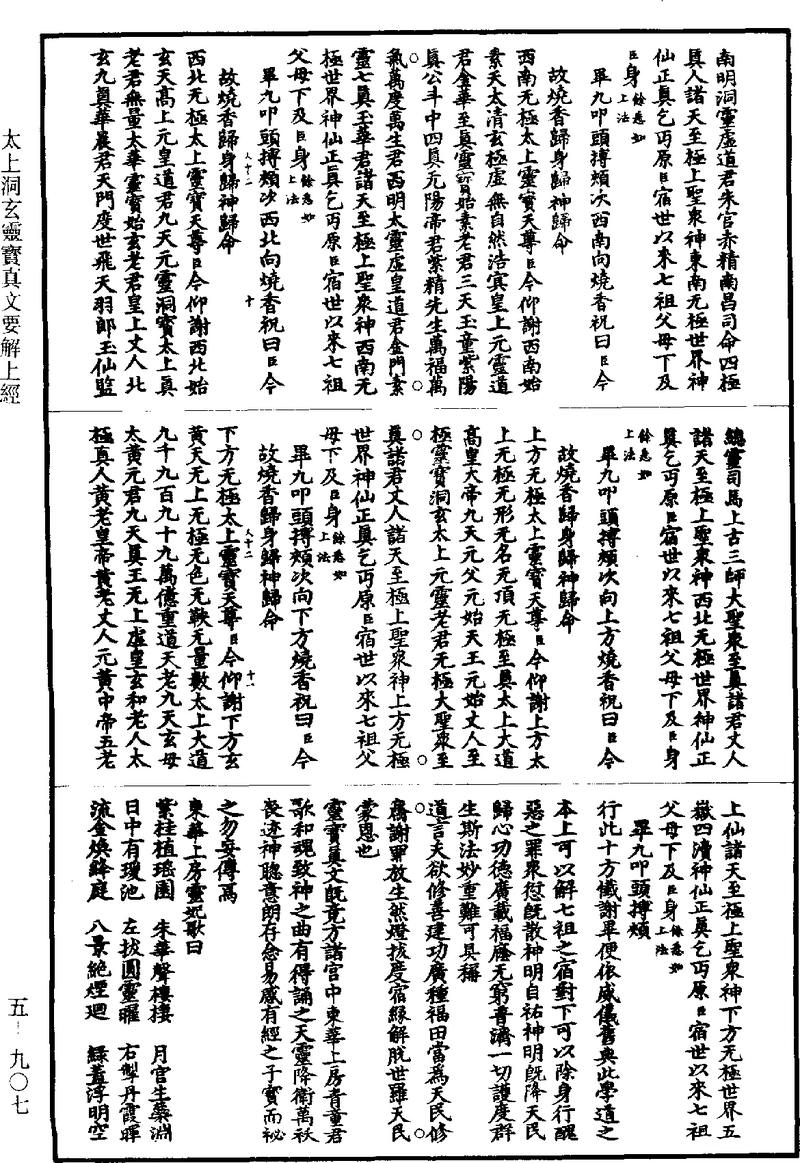 太上洞玄靈寶真文要解上經
五－九〇七
南明洞靈虛道君朱宮赤精南昌司命四極
真人諸天至極上聖衆神東南无極世界神
仙正真乞丐原臣宿世以來七祖父母下及
臣身餘悉如上法
畢九叩頭搏頰次西南向燒香祝曰臣今
故燒香歸身歸神歸命
西南无極太上靈寶天尊臣今仰謝西南始
素天太清玄極虛無自然浩㝠皇上元靈道
君金華至真靈寶始素老君三天玉童紫陽
真公斗中四真元陽帝君紫精先生萬福萬
氣萬度萬生君西明太靈虛皇道君金門素
靈七真玉華君諸天至極上聖衆神西南无
極世界神仙正真乞丐原臣宿世以來七祖
父母下及臣身餘悉如上法
畢九叩頭搏頰次西北向燒香祝曰臣今
人十二 十
故燒香歸身歸神歸命
西北无極太上靈寶天尊臣今仰謝西北始
玄天高上元皇道君九天元靈洞寶太上真
老君無量太華靈寶始玄老君皇上丈人北
玄九真華晨君天門度世飛天羽郎玉仙監
總靈司馬上古三師大聖衆至真諸君丈人
諸天至極上聖衆神西北无極世界神仙正
真乞丐原臣宿世以來七祖父母下及臣身
餘悉如上法
畢九叩頭搏頰次向上方燒香祝曰臣今
故燒香歸身歸神歸命
上方无極太上靈寶天尊臣今仰謝上方太
上无極无形无名无頂无極至真太上大道
高皇大帝九天元父元始天王元始丈人至
極靈寶洞玄太上元靈老君无極大聖衆至
真諸君丈人諸天至極上聖衆神上方无極
世界神仙正真乞丐原臣宿世以來七祖父
母下及臣身餘悉如上法
畢九叩頭搏頰次向下方燒香祝曰臣今
故燒香歸身歸神歸命
人十二 十一
下方无極太上靈寶天尊臣今仰謝下方玄
黃天无上无極无色无鞅无量數太上大道
九千九百九十九萬億重道天老九天玄母
太黃元君九天真王无上虛皇玄和老人太
極真人黃老皇帝黃老丈人元黃中帝五老
上仙諸天至極上聖衆神下方无極世界五
嶽四瀆神仙正真乞丐原臣宿世以來七祖
父母下及臣身餘悉如上法
畢九叩頭搏頰
行此十方懺謝畢便依威儀舊典此學道之
本上可以解七祖之宿對下可以除身行醜
惡之罪衆愆既散神明自祐神明既降天民
歸心功德廣載福廕无窮普濟一切護度群
生斯法妙重難可具稱
道言夫欲修善建功廣種福田當爲天民修
齋謝罪放生然燈拔度宿緣解脫世羅天民
蒙恩也
靈寶真文既竟方諸宮中東華上房青童君
歌和魂致神之曲有得誦之天靈降衛萬祅
喪迹神聰意朗存念易感有經之子寶而祕
之勿妄傳焉
東華上房靈妃歌曰
紫桂植瑤園 朱華聲樓樓 月宮生蘂淵
日中有瓊池 左拔圓靈曜 右掣丹霞暉
流金煥絳庭 八景絶煙迴 緑蓋浮明空